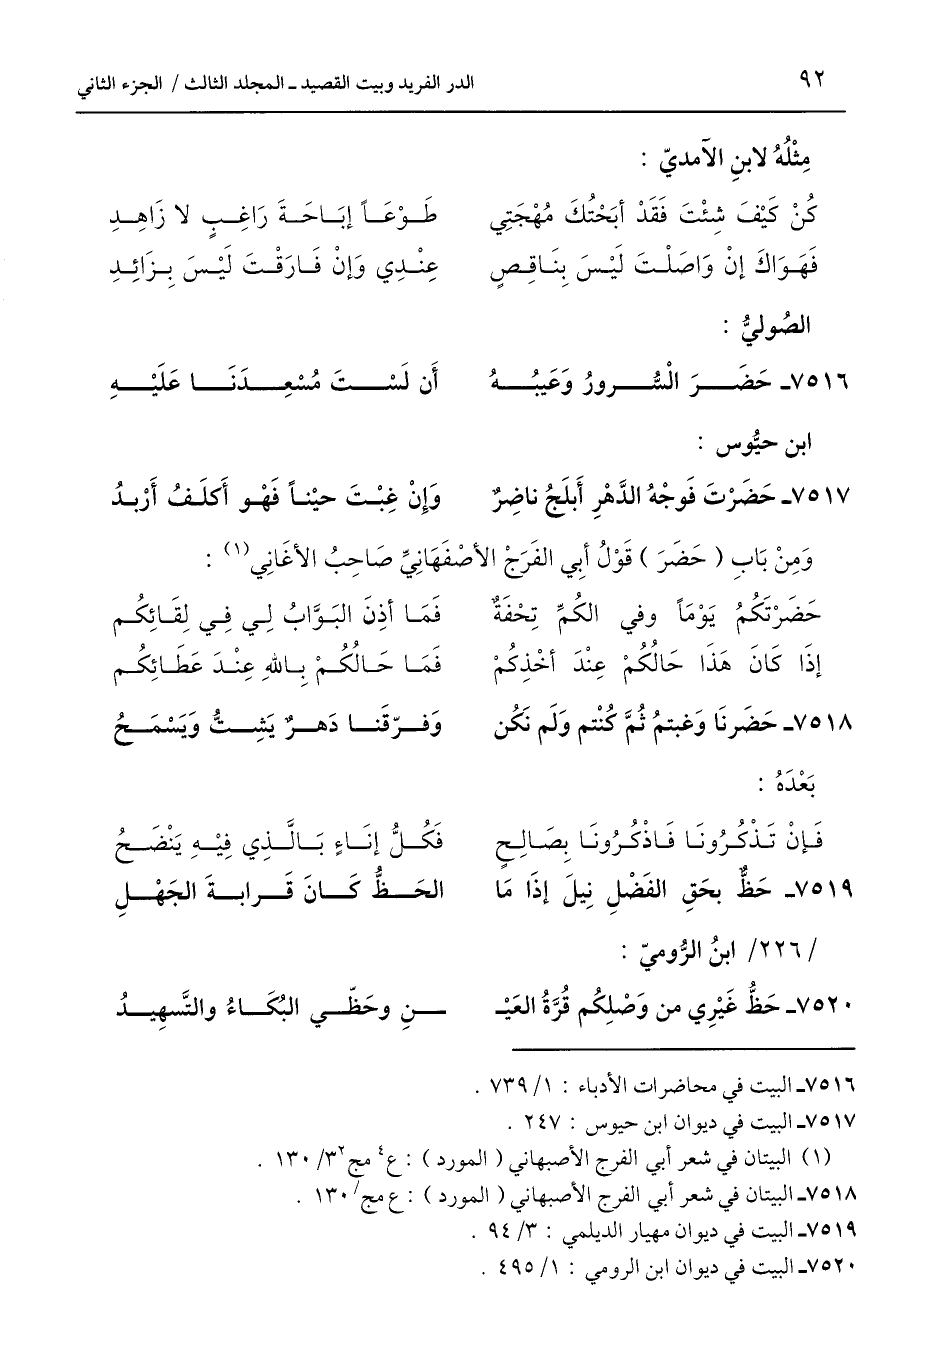 ٩٢ الدر الفريد وبيت القصيد ـ المجلد الثالث / الجزء الثاني
مِثْلُهُ لابنِ الآمديّ :
كُنْ كَيْفَ شِئْتَ فَقَدْ أبَحْتُكَ مُهْجَتِي طَوْعَاً إبَاحَةَ رَاغِبٍ لا زَاهِدِ
فَهَوَاكَ إنْ وَاصَلْتَ لَيْسَ بِنَاقِصٍ عِنْدِي وَإنْ فَارَقْتَ لَيْسَ بِزَائِدِ
الصُوليُّ :
٧٥١٦ـ حَضَرَ الْسُّرورُ وَعَيبُهُ أَن لَسْتَ مُسْعِدَنَا عَلَيْهِ
ابن حيُّوس :
٧٥١٧ـ حَضَرْتَ فَوجْهُ الدَّهْرِ أَبلَجُ ناضِرٌ وَإِنْ غِبْتَ حيْناً فَهْو أَكلَفُ أَرْبدُ
وَمِنْ بَابِ ( حَضَرَ ) قَوْلُ أبِي الفَرَجْ الأصْفَهَانِيِّ صَاحِبُ الأغَانِي(١) :
حَضَرْتَكُمُ يَوْمَاً وفي الكُمِّ تِحْفَةٌ فَمَا أذِنَ البَوَّابُ لِي فِي لِقَائِكُمِ
إذَا كَانَ هَذَا حَالُكُمْ عِنْدَ أخْذِكُمْ فَمَا حَالُكُمْ بِاللهِ عِنْدَ عَطَائِكُمِ
٧٥١٨ـ حَضَرنَا وَغبتمُ ثُمَّ كُنْتم وَلَم نَكُن وَفرّقَنا دَهرٌ يَشِتُّ وَيَسْمَحُ
بَعْدَهُ :
فَإنْ تَذْكُرُونَا فَاذْكُرُونَا بِصَالِحٍ فَكُلُّ إنَاءٍ بَالَّذِي فِيْهِ يَنْضَحُ
٧٥١٩ـ حَظٌّ بحَقِ الفَضْلِ نِيلَ إذَا مَا الحَظُّ كَانَ قَرابةَ الجَهْلِ
/ ٢٢٦/ ابنُ الرُّوميّ :
٧٥٢٠ـ حَظُّ غَيْرِي من وَصْلِكُم قُرَّةُ العَيْـ ـنِ وحَظّي البُكَاءُ والتَّسهِيدُ
٧٥١٦ـ البيت في محاضرات الأدباء : ١/ ٧٣٩ .
٧٥١٧ـ البيت في ديوان ابن حيوس : ٢٤٧ .
(١) البيتان في شعر أبي الفرج الأصبهاني ( المورد ) : ع٤ مج٣٢/ ١٣٠ .
٧٥١٨ـ البيتان في شعر أبي الفرج الأصبهاني ( المورد ) : ع مج/ ١٣٠ .
٧٥١٩ـ البيت في ديوان مهيار الديلمي : ٣/ ٩٤ .
٧٥٢٠ـ البيت في ديوان ابن الرومي : ١/ ٤٩٥ .